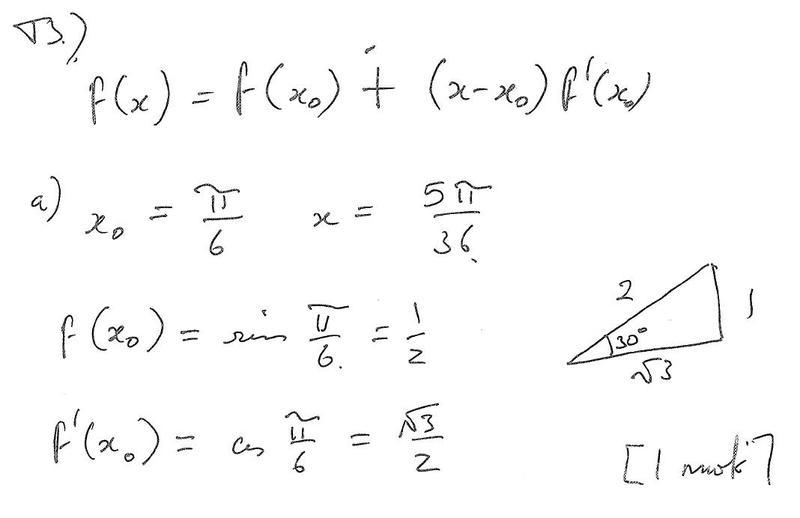 √3.)
f(x) = f(x₀) + (x-x₀) f'(x₀)
a) x₀ = π/6 x = 5π/36
f(x₀) = sin π/6 = 1/2
2 1 30° √3
f'(x₀) = cos π/6 = √3/2
[1 mark]